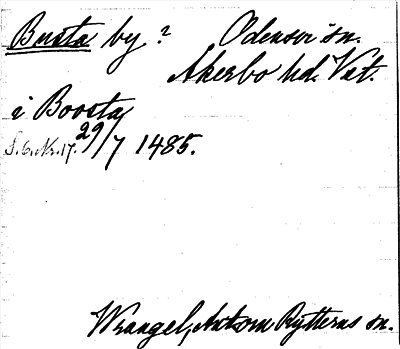 Busta by? Odensvi sn.
Åkerbo hd. Vst.
i Boosta
S. 6. Nr. 17. 29/7 1485.
Wrangel, Rytterns sn.